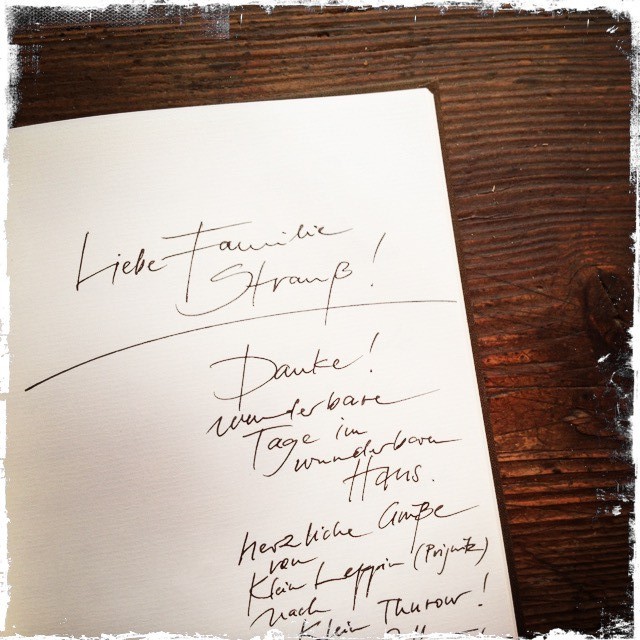 Liebe Familie
Strauß!
Danke!
wunderbare
Tage im
wunderbaren
Haus.
herzliche Grüße
von
Klein Leppin (Prignitz)
nach
Klein Thurow!